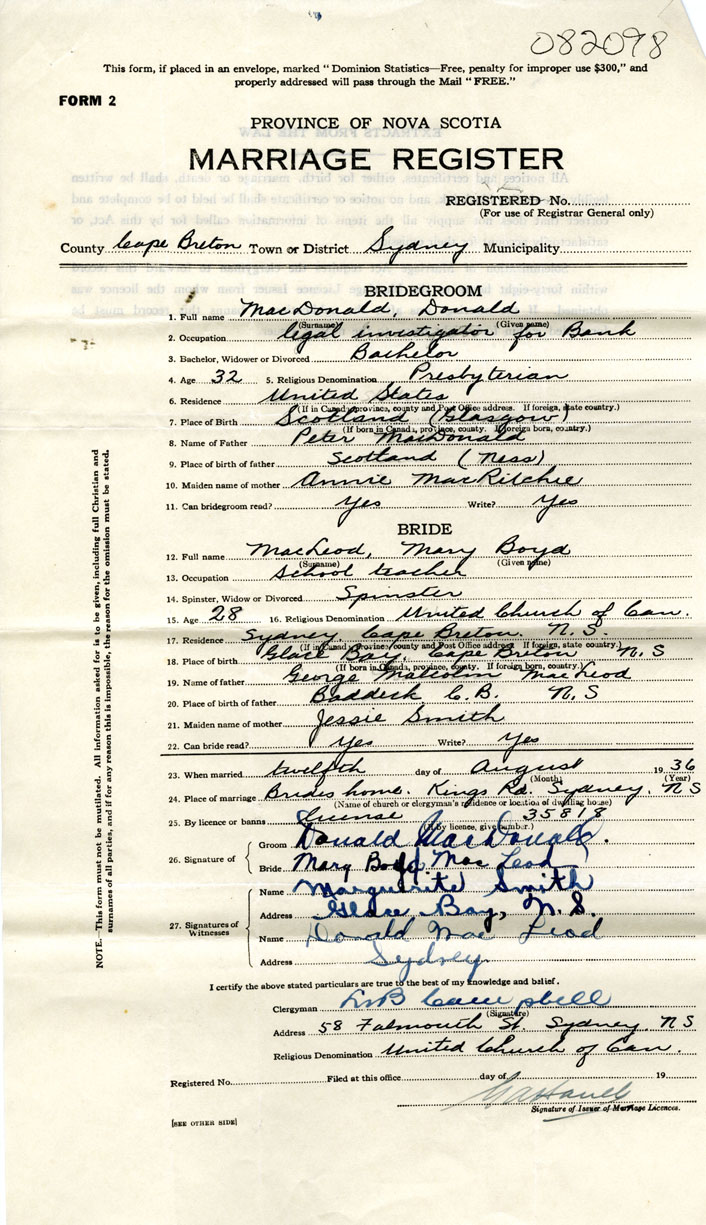 082098
This form, if placed in an envelope, marked "Dominion Statistics—Free, penalty for improper use $300," and
properly addressed will pass through the Mail "FREE."
FORM 2
PROVINCE OF NOVA SCOTIA
MARRIAGE REGISTER
REGISTERED No.
(For use of Registrar General only)
County Cape Breton Town or District Sydney Municipality
BRIDEGROOM
1. Full name MacDonald, Donald
(Surname) (Given name)
2. Occupation legal investigator for Bank
3. Bachelor, Widower or Divorced Bachelor
4. Age 32 5. Religious Denomination Presbyterian
6. Residence United States
(If in Canada, province, county and Post Office address. If foreign, state country.)
7. Place of Birth Scotland (Glasgow)
(If born in Canada, province, county. If foreign born, country.)
8. Name of Father Peter MacDonald
9. Place of birth of father Scotland (Ness)
10. Maiden name of mother Annie MacRitchie
11. Can bridegroom read? Yes Write? Yes
BRIDE
12. Full name MacLeod, Mary Boyd
(Surname) (Given name)
13. Occupation School teacher
14. Spinster, Widow or Divorced Spinster
15. Age 28 16. Religious Denomination United Church of Can.
17. Residence Sydney, Cape Breton. N.S.
(If in Canada, province, county and Post Office address. If foreign, state country.)
18. Place of birth Glace Bay, Cape Breton N.S
(If born in Canada, province, county. If foreign born, country.)
19. Name of father George Malcolm MacLeod
20. Place of birth of father Baddeck C.B. N.S
21. Maiden name of mother Jessie Smith
22. Can bride read? Yes Write? Yes
23. When married twelfth day of August 1936
(Month) (Year)
24. Place of marriage Brides home. Kings Rd. Sydney. N S
(Name of church or clergyman's residence or location of dwelling house)
25. By licence or banns License 35818
(If by licence, give number.)
26. Signature of
Groom Donald MacDonald.
Bride Mary Boyd MacLeod
27. Signatures of Witnesses
Name Marguerite Smith
Address Glace Bay, N.S.
Name Donald MacLeod
Address Sydney
I certify the above stated particulars are true to the best of my knowledge and belief.
Clergyman Campbell
(Signature)
Address 58 Falmouth St. Sydney. N S
Religious Denomination United Church of Can.
Registered No. Filed at this office day of 19
Signature of Issuer of Marriage Licences.
[SEE OTHER SIDE]
NOTE.—This form must not be mutilated. All information asked for is to be given, including full Christian and
surnames of all parties, and if for any reason this is impossible, the reason for the omission must be stated.